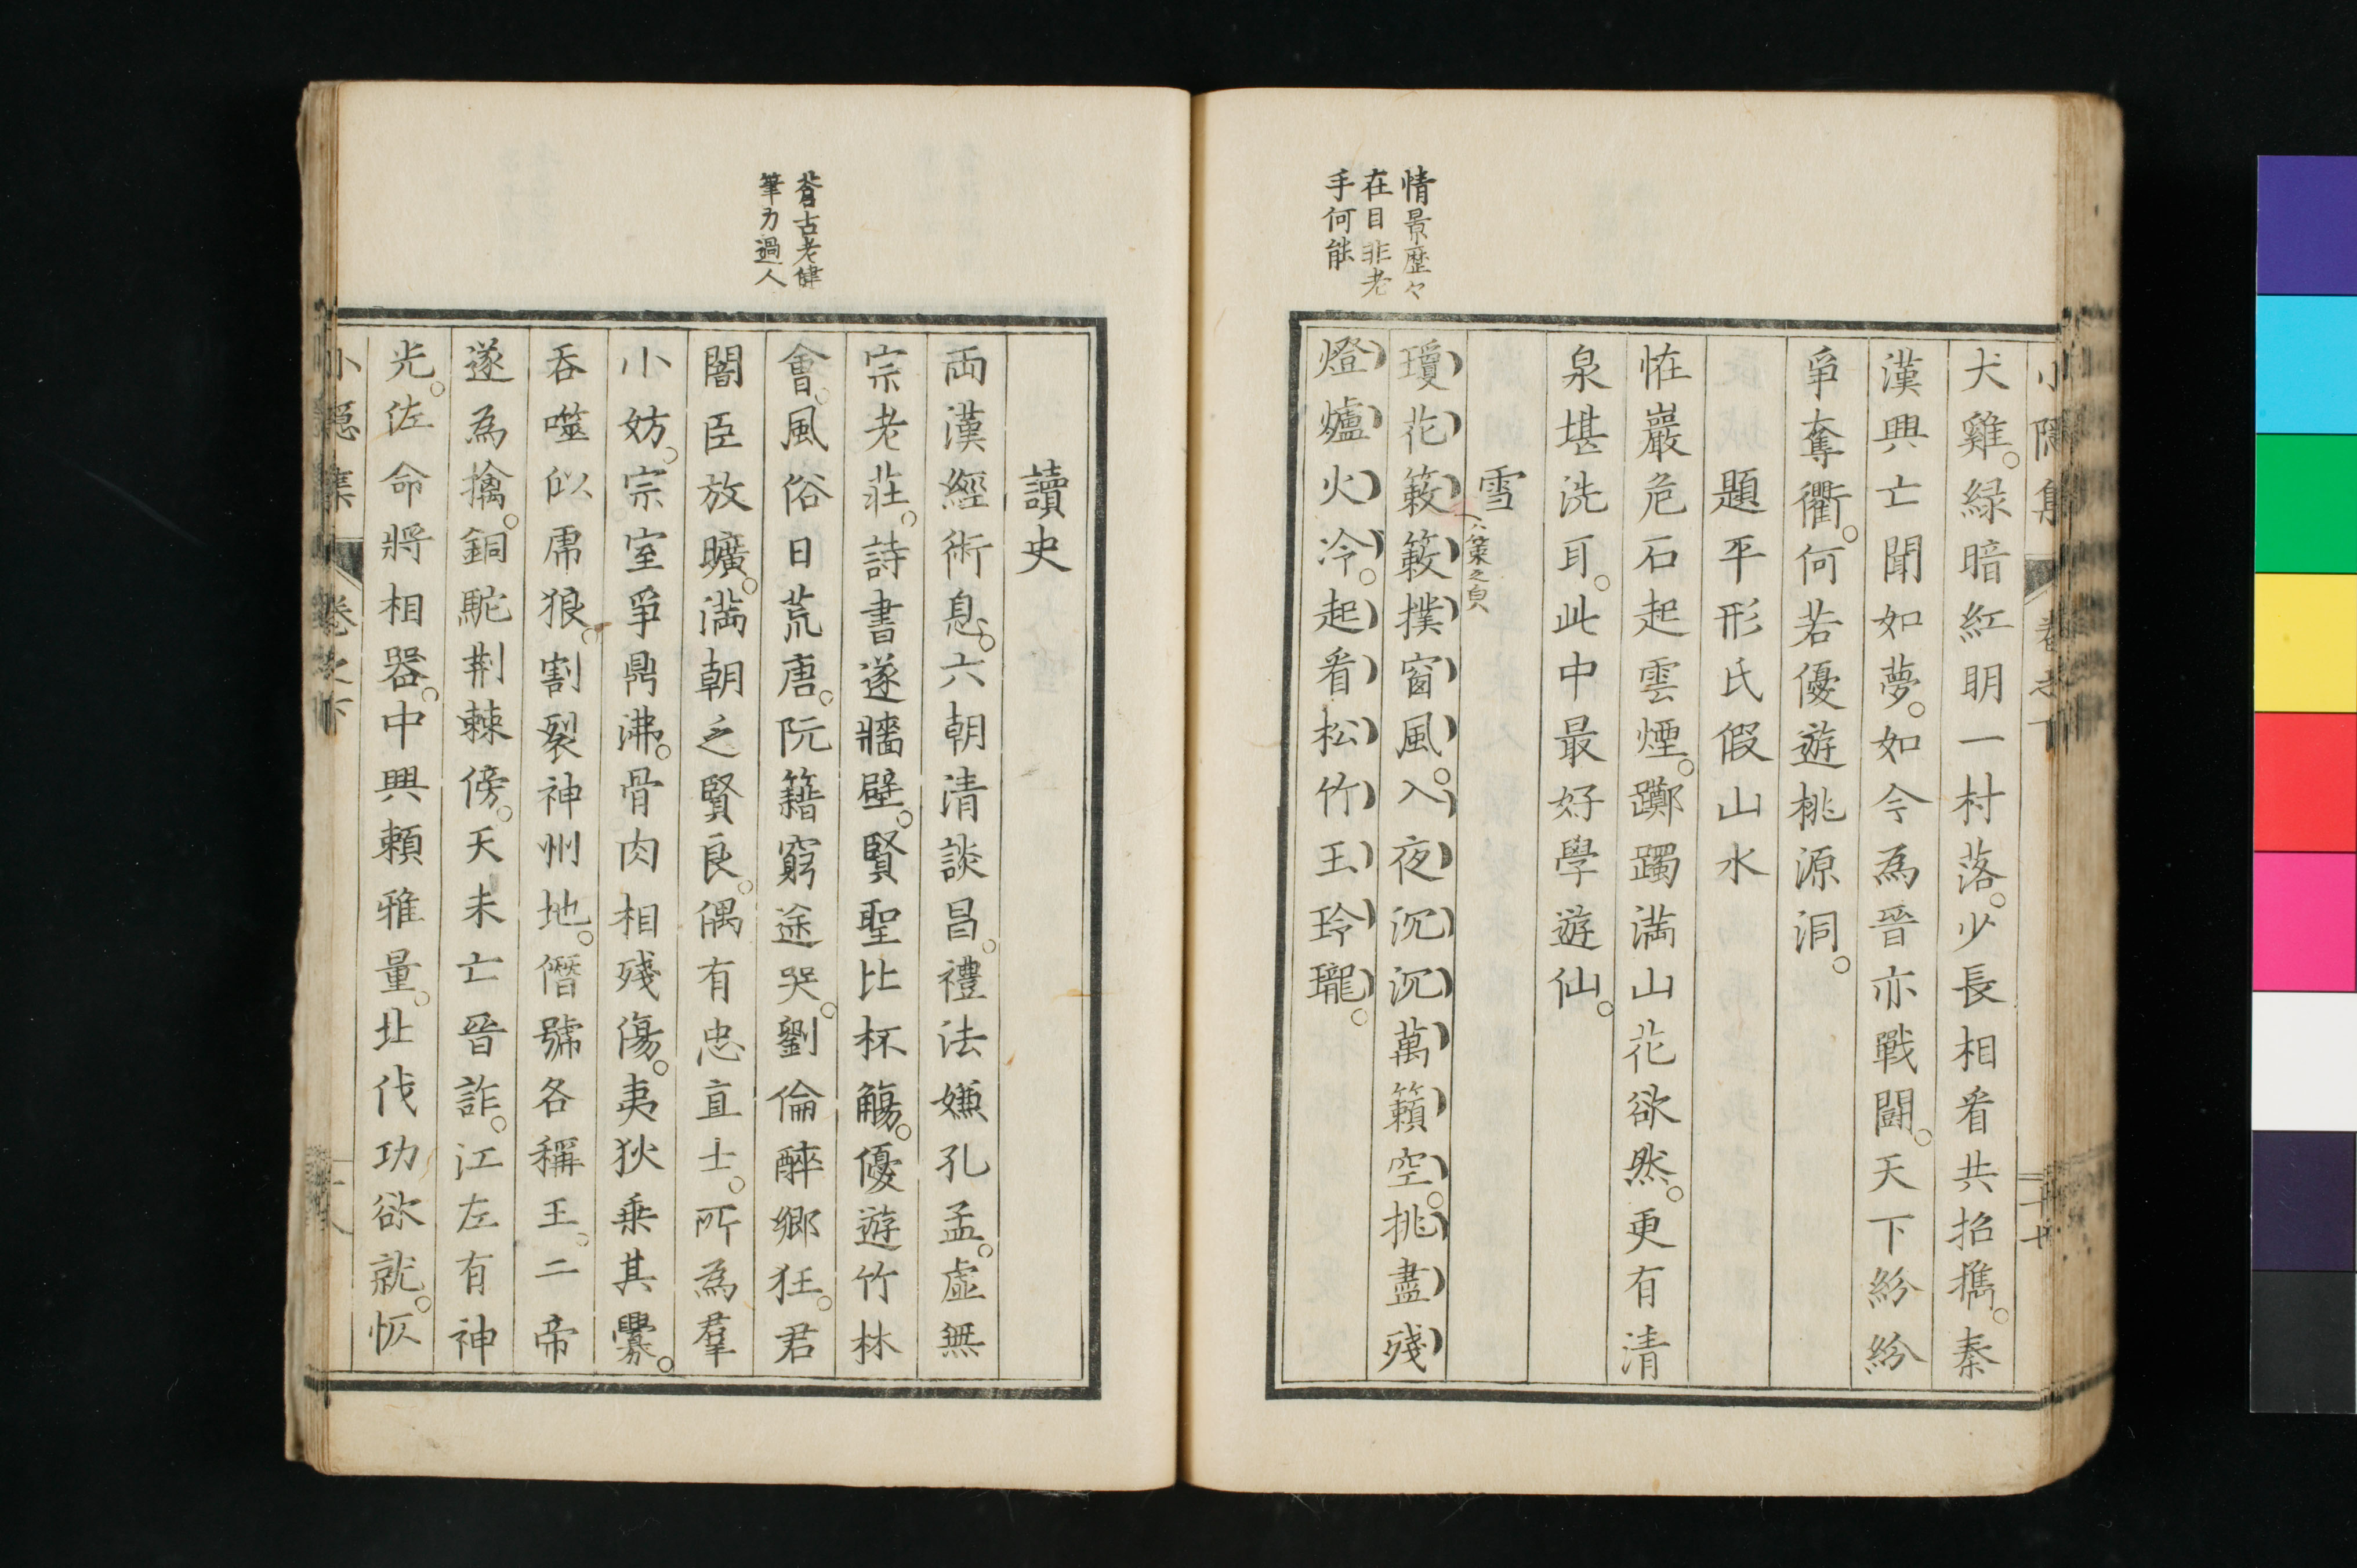 情景歴々
在目非老
手何能
小隠集
卷之下
二十七
犬雞。緑暗紅明一村落。少長相看共招攜。秦
漢興亡聞如夢。如今為晉亦戰鬪。天下紛紛
爭奪衢。何若優遊桃源洞。
題平形氏假山水
恠巖危石起雲煙。躑躅満山花欲然。更有清
泉堪洗耳。此中最好學遊仙。
雪
瓊花簌簌撲窗風。入夜沉沉萬籟空。挑盡殘
燈爐火冷。起看松竹玉玲瓏。
蒼古老健
筆力過人
讀史
両漢經術息。六朝清談昌。禮法嫌孔孟。虛無
宗老莊。詩書遂牆壁。賢聖比杯觴。優遊竹林
會。風俗日荒唐。阮籍窮途哭。劉倫醉鄉狂。君
闇臣放曠。満朝乏賢良。偶有忠直士。所為羣
小妨。宗室爭鼎沸。骨肉相殘傷。夷狄乗其釁。
吞噬似虎狼。割裂神州地。僭號各稱王。二帝
遂為擒。銅駝荆棘傍。天未亡晉詐。江左有神
光。佐命將相器。中興頼雅量。北伐功欲就。恢
小隠集
卷之下